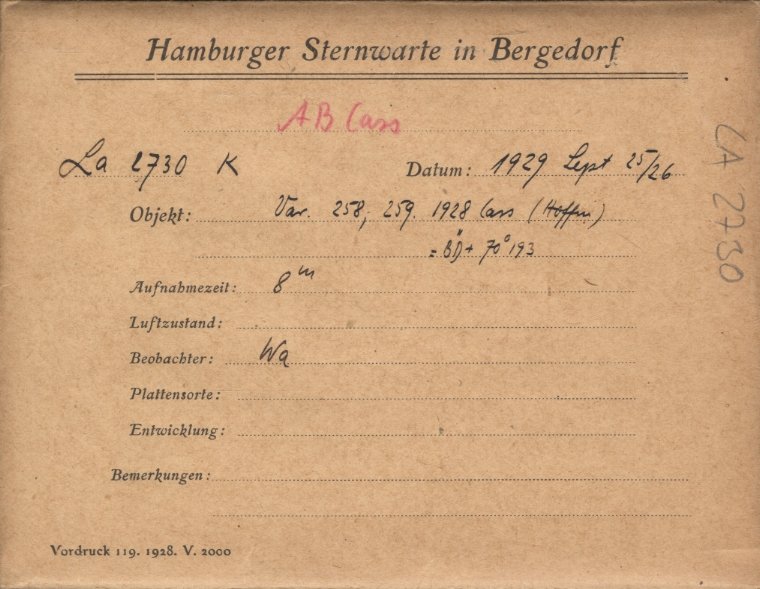 Hamburger Sternwarte in Bergedorf
AB Cass
La 2730 K Datum: 1929 Sept 25/26
Objekt: Var. 258, 259. 1928 Cass (Hoffm)
= BD + 70° 193
Aufnahmezeit: 8m
Luftzustand:
Beobachter: Wa
Plattensorte:
Entwicklung:
Bemerkungen:
Vordruck 119. 1928. V. 2000
LA 2730